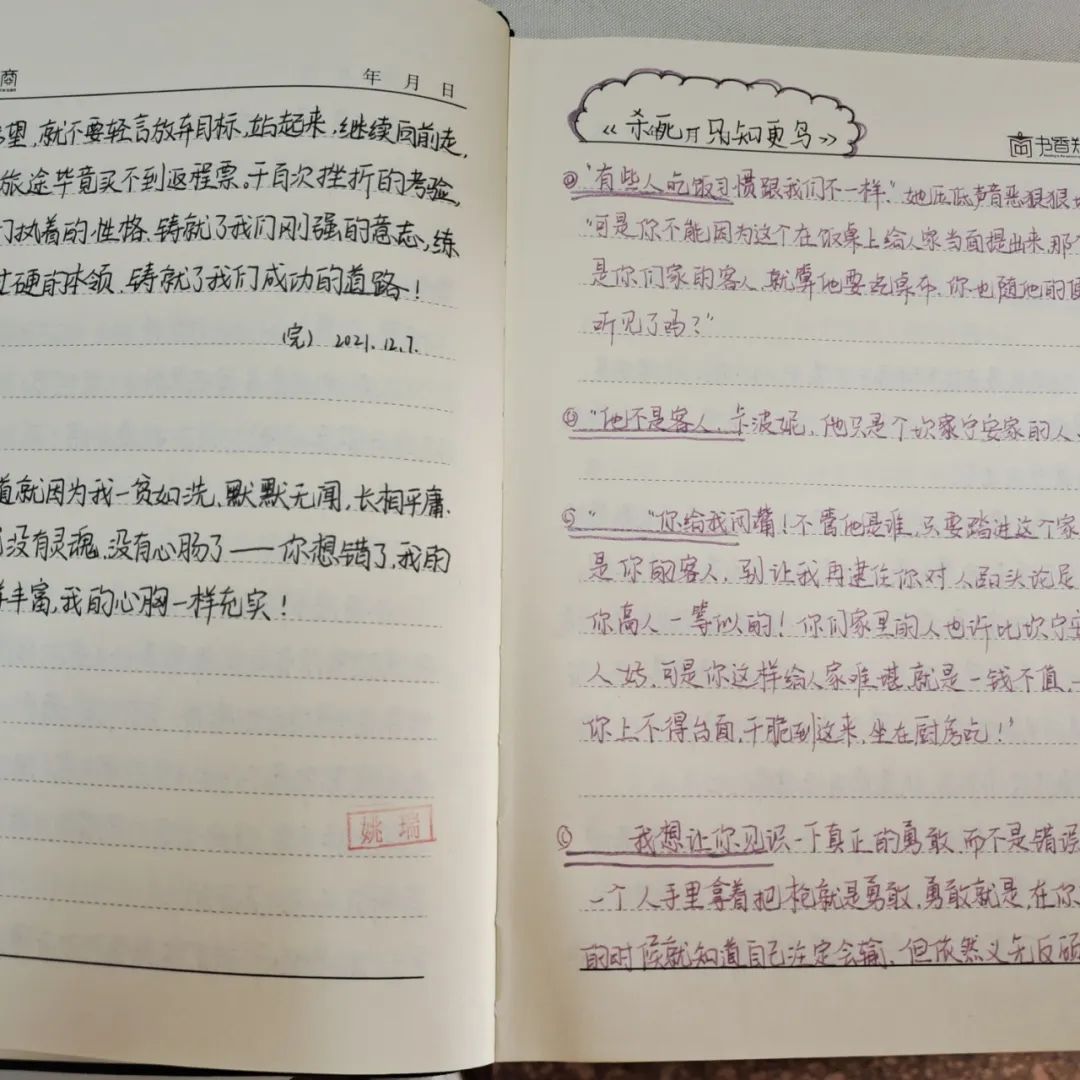 商
年 月 日
望,就不要轻言放弃目标,站起来,继续向前走,
旅途毕竟买不到返程票。千百次挫折的考验,
们执着的性格、铸就了我们刚强的意志,练
过硬的本领、铸就了我们成功的道路!
(完) 2021.12.7.
道就因为我一贫如洗、默默无闻、长相平庸、
没有灵魂、没有心肠了——你想错了,我的
样丰富,我的心胸一样充实!
姚 瑞
《杀死一只知更鸟》
书香
"有些人吃饭习惯跟我们不一样," 她压低声音恶狠狠
"可是你不能因为这个在饭桌上给人家当面提出来,那个
是你们家的客人,就算他要吃桌布,你也随他的便
听见了吗?"
"他不是客人,卡波妮,他只是个坎宁安家的人、
" "你给我闭嘴!不管他是谁,只要踏进这个家
是你的客人,别让我再逮住你对人品头论足
你高人一等似的!你们家里的人也许比坎宁安
人好,可是你这样给人家难堪,就是一钱不值,
你上不得台面,干脆到这来,坐在厨房吃!"
我想让你见识一下真正的勇敢,而不是错误
一个人手里拿着把枪就是勇敢,勇敢就是,在你
的时候就知道自己注定会输、但依然义无反顾